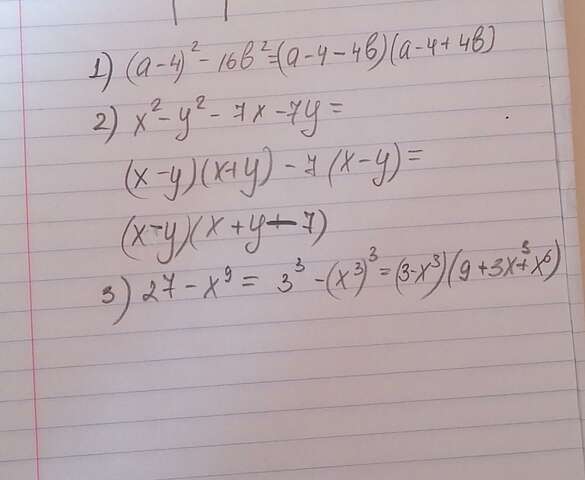 1) (a-4)² - 16в² = (a-4-4в)(a-4+4в)
2) x² - y² - 7x - 7y =
(x-y)(x+y) - 7(x-y) =
(x-y)(x+y-7)
3) 27 - x⁹ = 3³ - (x³)³ = (3-x³)(9+3x³+x⁶)